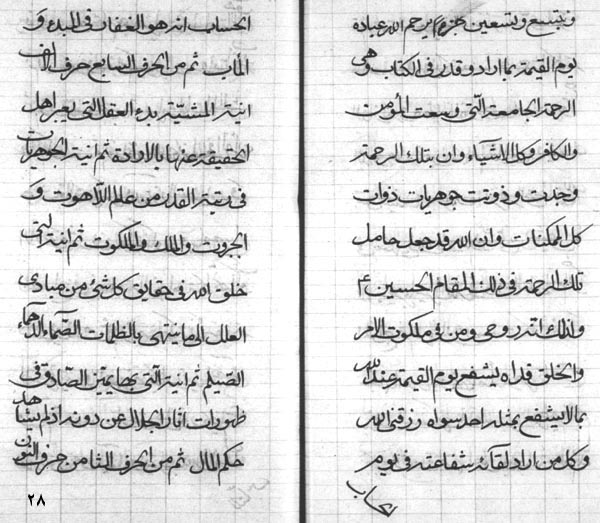 وبتسع وتسعين جزء يرحم الله عباده
يوم القيمة بما اراد وقدر فى الكتاب وهى
الرحمة الجامعة التى وسعت المؤمن
والكافر وكل الاشياء وان بتلك الرحمة
وجدت وذوتت جوهريات ذوات
كل الممكنات وان الله قد جعل حامل
تلك الرحمة فى ذلك المقام الحسين ع
ولذلك انه روحى ومن فى ملكوت الامر
والخلق فداه يشفع يوم القيمة عند الله
بما لا يشفع بمثله احد سواه رزقنى الله
وكل من اراد لقائه شفاعته فى يوم
الحساب
الحساب انه هو الغفار فى المبدء و
المآب ثم من الحرف السابع حرف الالف
انية المشيّة بدء العقل التى يعبر اهل
الحقيقة عنها بالارادة ثم انية الجوهريات
فى رتبة القدر من عالم اللاهوت و
الجبروت والملك والملكوت ثم انية التى
خلق الله فى حقايق كل شئ من مبادى
العلل الى ما ينتهى بالظلمات الصّماء الدهماء
الصّيلم ثم انية التى بها يميّن الصّادق فى
ظهورات اثار الجلال عن دونه اذ لم يشاهد
حكم المال ثم من الحرف الثامن حرف النون
٢٨